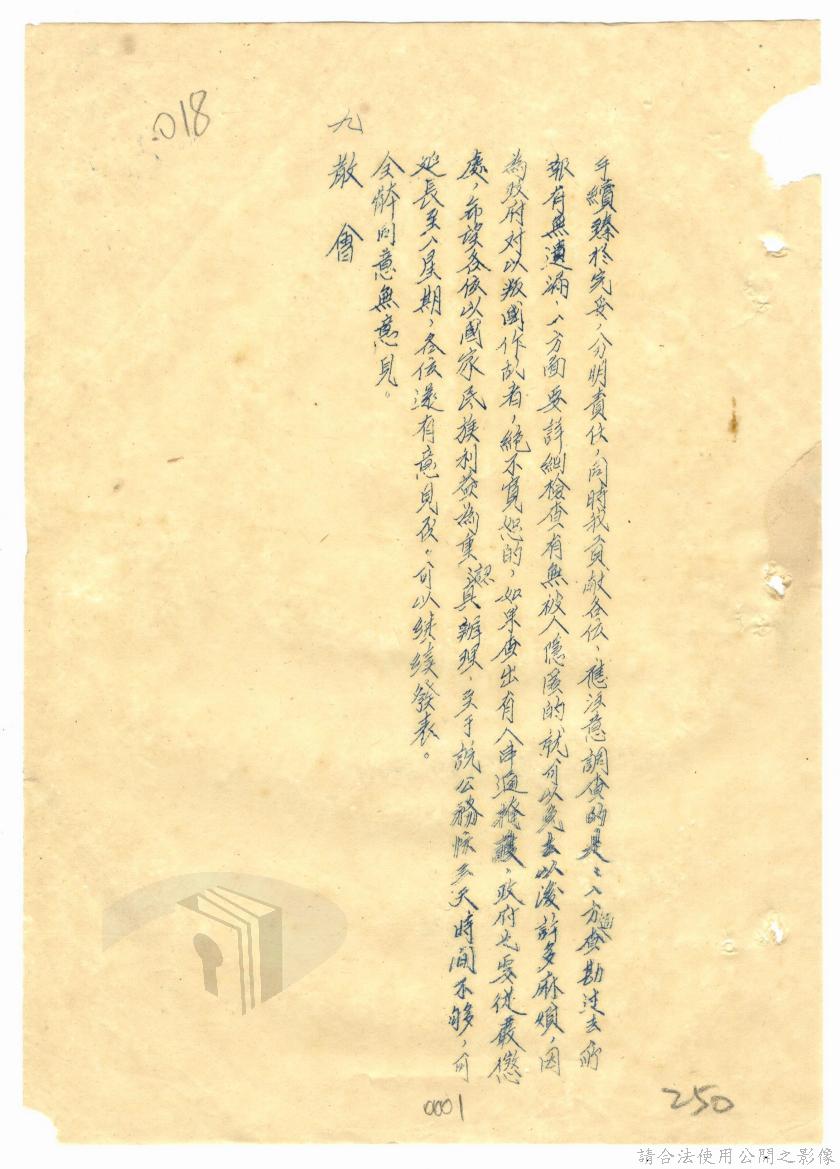 018
手續臻於完妥，分明責任，同時我貢献各位，應注意調查的是：一方面查勘过去所
報有無遺漏，一方面要詳細檢查有無被人隱匿的就可以免去以後許多麻煩，因
為政府対以叛國作故者，絕不寬恕的，如果查出有人串通掩護，政府必要從嚴懲
處，希望各位以國家民族利益為重認真辦理，至于說公務係三天時間不够，可
延長至一星期，各位還有意見否，可以继續發表。
全体同意無意見。
九 散會
0001
250
請合法使用公開之影像